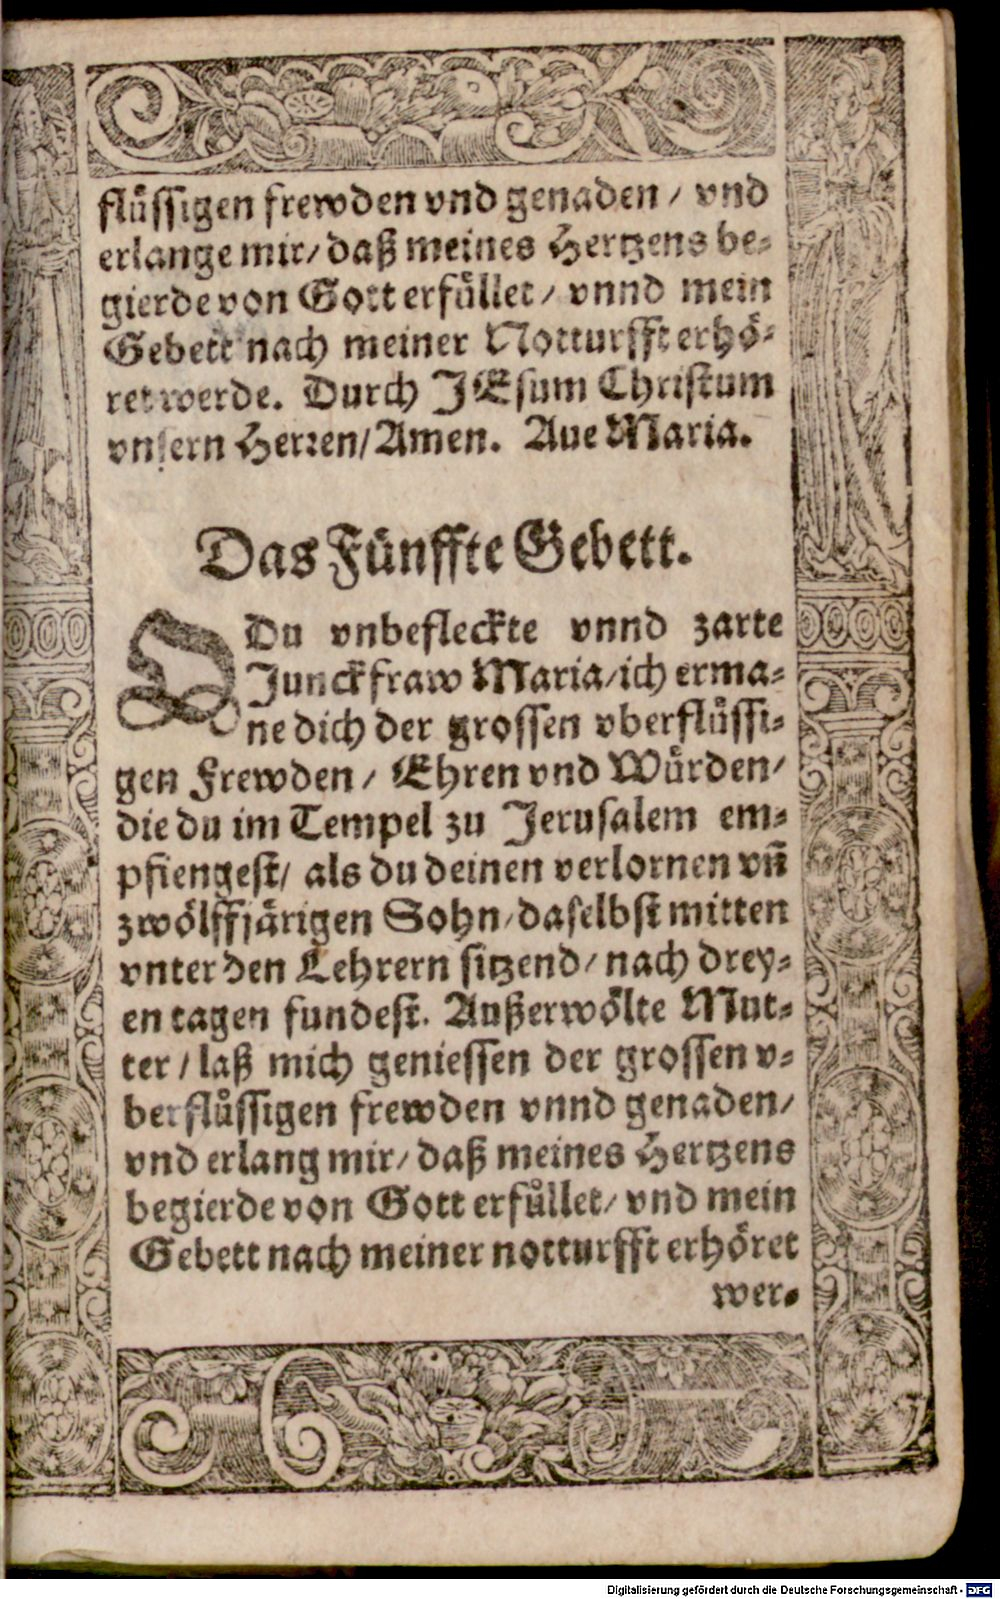 flüssigen frewden vnd genaden / vnd
erlange mir / daß meines Hertzens be-
gierde von Gott erfüllet / vnnd mein
Gebett nach meiner Notturfft erhö-
ret werde. Durch JEsum Christum
vnsern Herren / Amen. Aue Maria.
Das Fünffte Gebett.
O Du vnbefleckte vnnd zarte
Junckfraw Maria / ich erma-
ne dich der grossen vberflüssi-
gen Frewden / Ehren vnd Würden /
die du im Tempel zu Jerusalem em-
pfiengest / als du deinen verlornen vñ
zwölffjärigen Sohn / daselbst mitten
vnter den Lehrern sitzend / nach drey-
en tagen fundest. Außerwölte Mut-
ter / laß mich geniessen der grossen v-
berflüssigen frewden vnnd genaden /
vnd erlang mir / daß meines Hertzens
begierde von Gott erfüllet / vnd mein
Gebett nach meiner notturfft erhöret
wer-
Digitalisierung gefördert durch die Deutsche Forschungsgemeinschaft - DFG